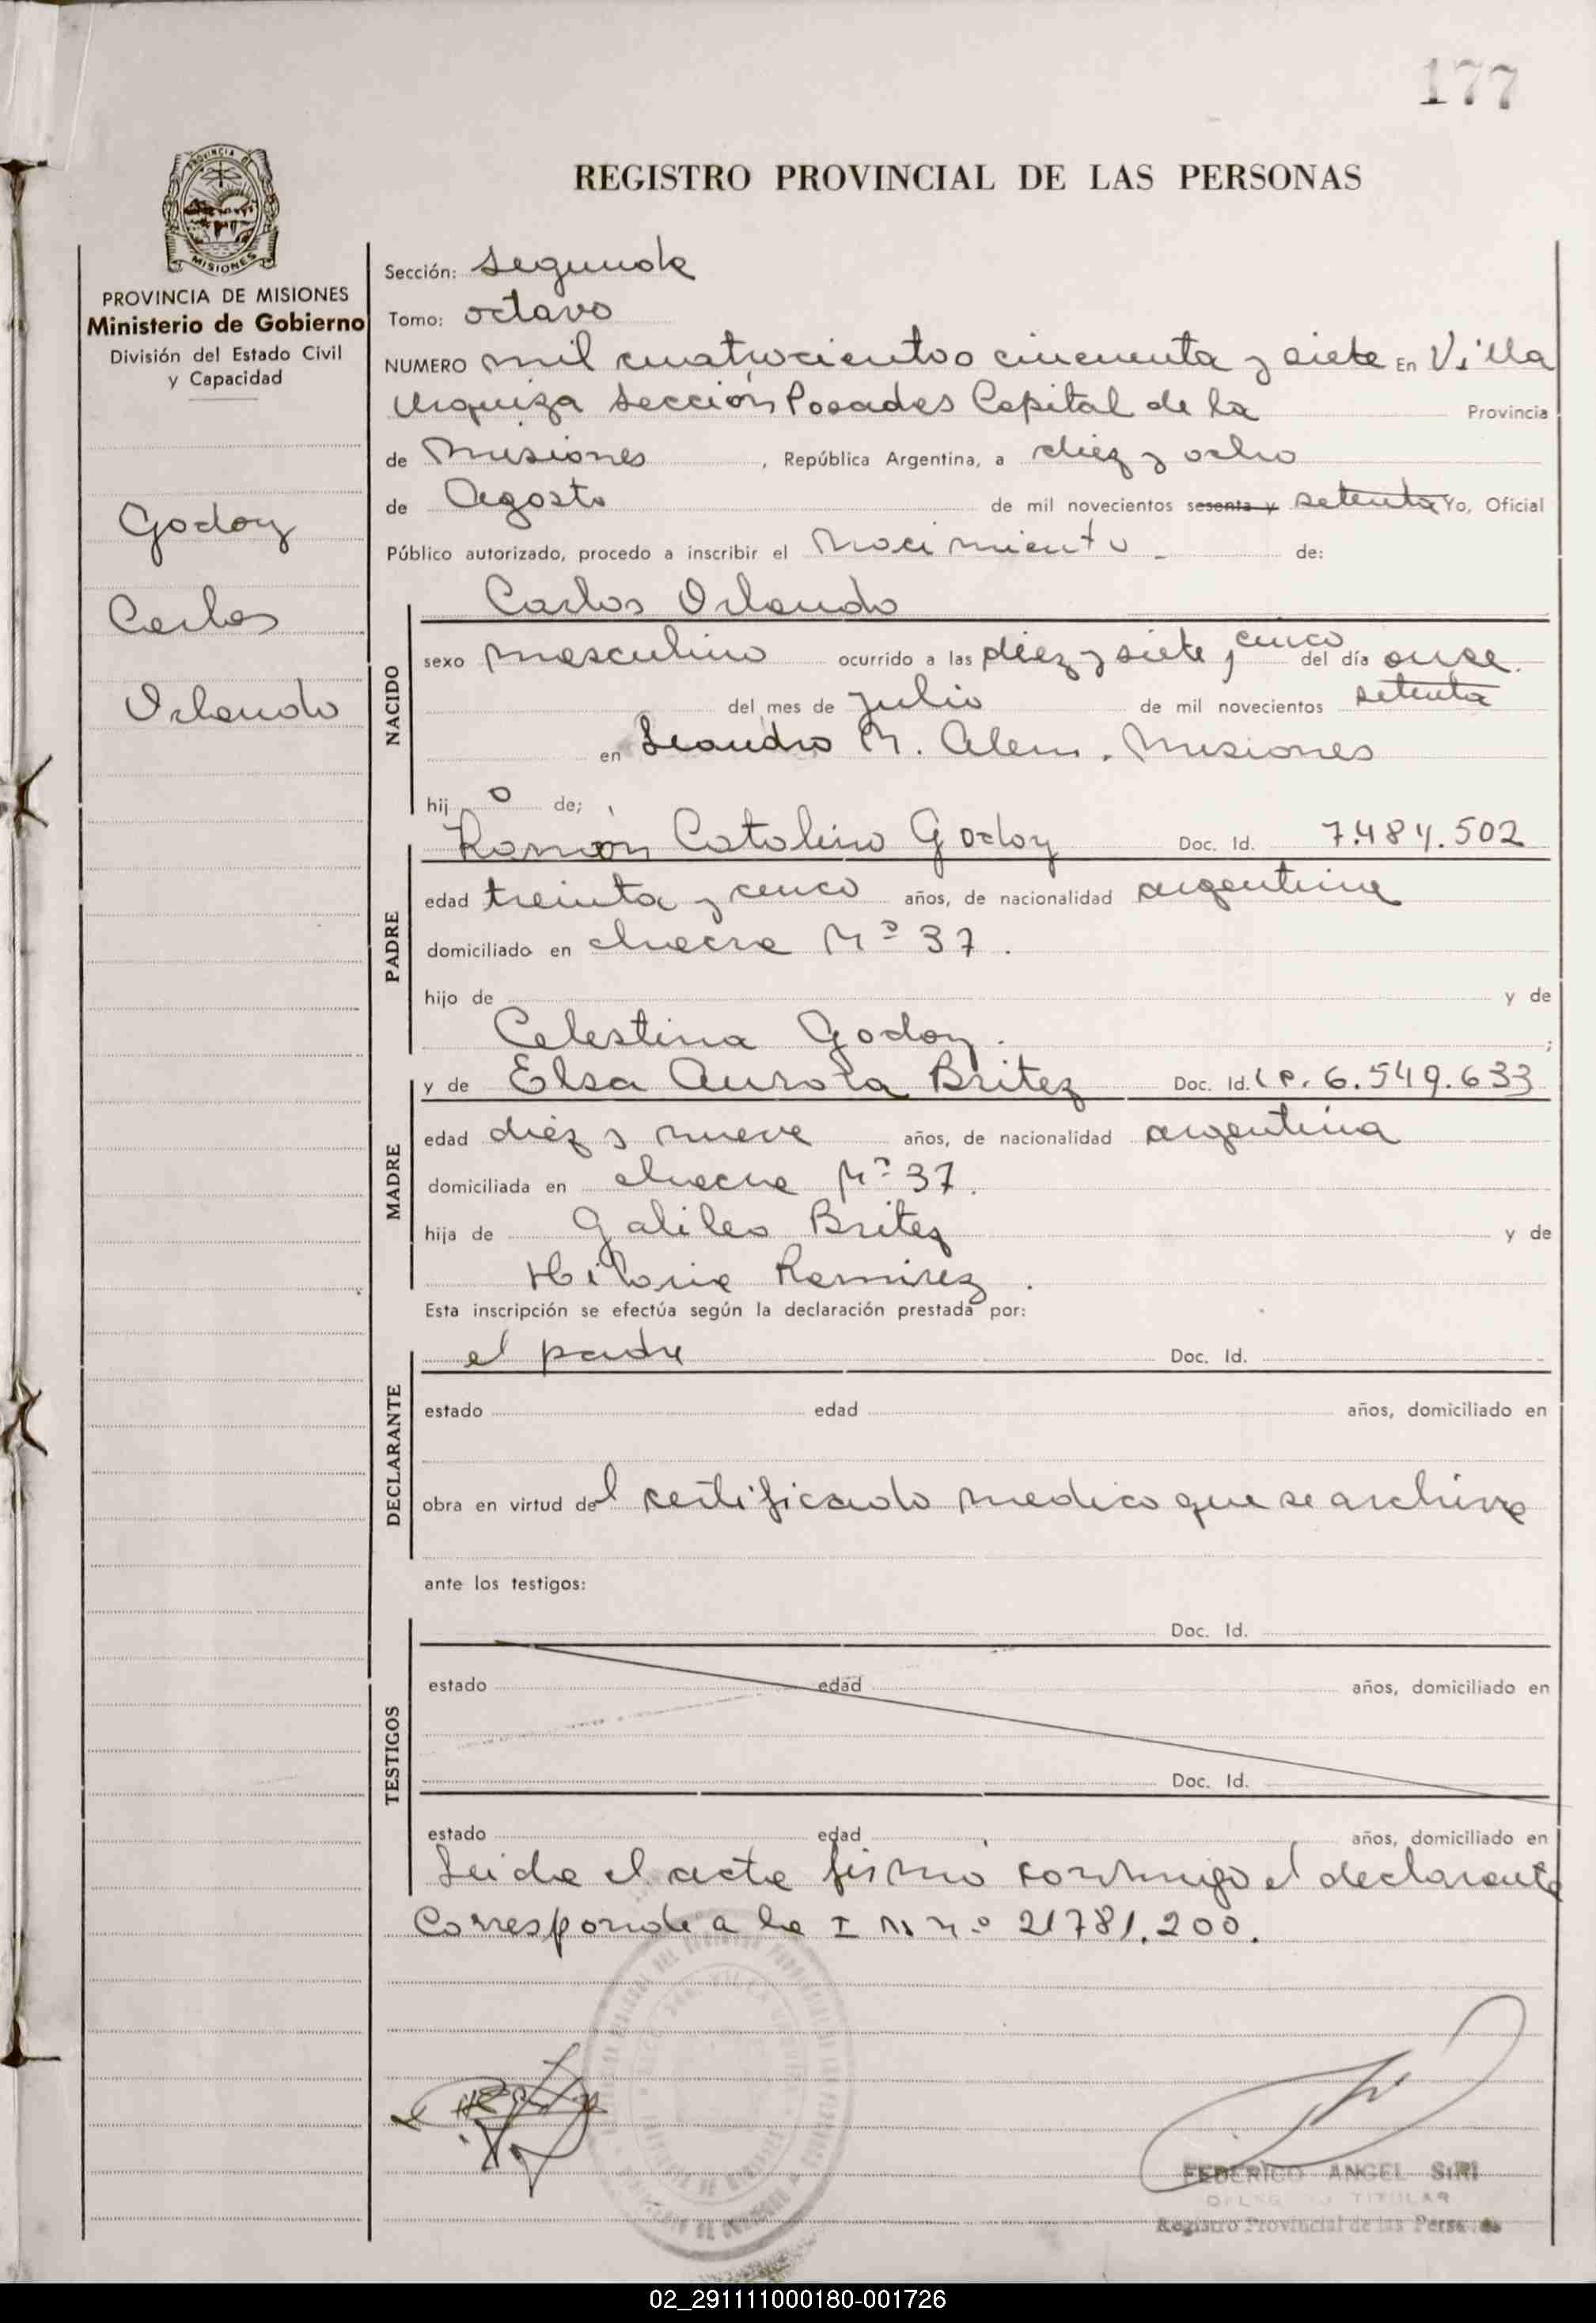 177
REGISTRO PROVINCIAL DE LAS PERSONAS
PROVINCIA DE MISIONES
Ministerio de Gobierno
División del Estado Civil
y Capacidad
Godoy
Carlos
Orlando
Sección: segunda
Tomo: octavo
NUMERO mil cuatrocientos cincuenta y siete En Villa
Urquiza Sección Posadas Capital de la Provincia
de Misiones, República Argentina, a diez y ocho
de Agosto de mil novecientos sesenta y setenta Yo, Oficial
Público autorizado, procedo a inscribir el Nacimiento de:
NACIDO
Carlos Orlando
sexo masculino ocurrido a las diez y siete, cinco del día once.
del mes de julio de mil novecientos setenta
en Leandro N. Alem. Misiones
hij o de;
PADRE
Ramón Catalino Godoy Doc. Id. 7.484.502
edad treinta y cinco años, de nacionalidad argentina
domiciliado en chacra Nº 37.
hijo de y de
Celestina Godoy.;
MADRE
y de Elsa Aurora Britez Doc. Id. LC. 6.549.633
edad diez y nueve años, de nacionalidad argentina
domiciliada en chacra Nº 37.
hija de Galileo Britez y de
Hilaria Ramirez.
Esta inscripción se efectúa según la declaración prestada por:
DECLARANTE
el padre Doc. Id.
estado edad años, domiciliado en
obra en virtud del certificado medico que se archiva
ante los testigos:
TESTIGOS
Doc. Id.
estado edad años, domiciliado en
Doc. Id.
estado edad años, domiciliado en
Leida el acta firmó conmigo el declarante
Corresponde a la I N nº 21781.200.
FEDERICO ANGEL SIRI
TITULAR
Registro Provincial de las Personas
02_291111000180-001726